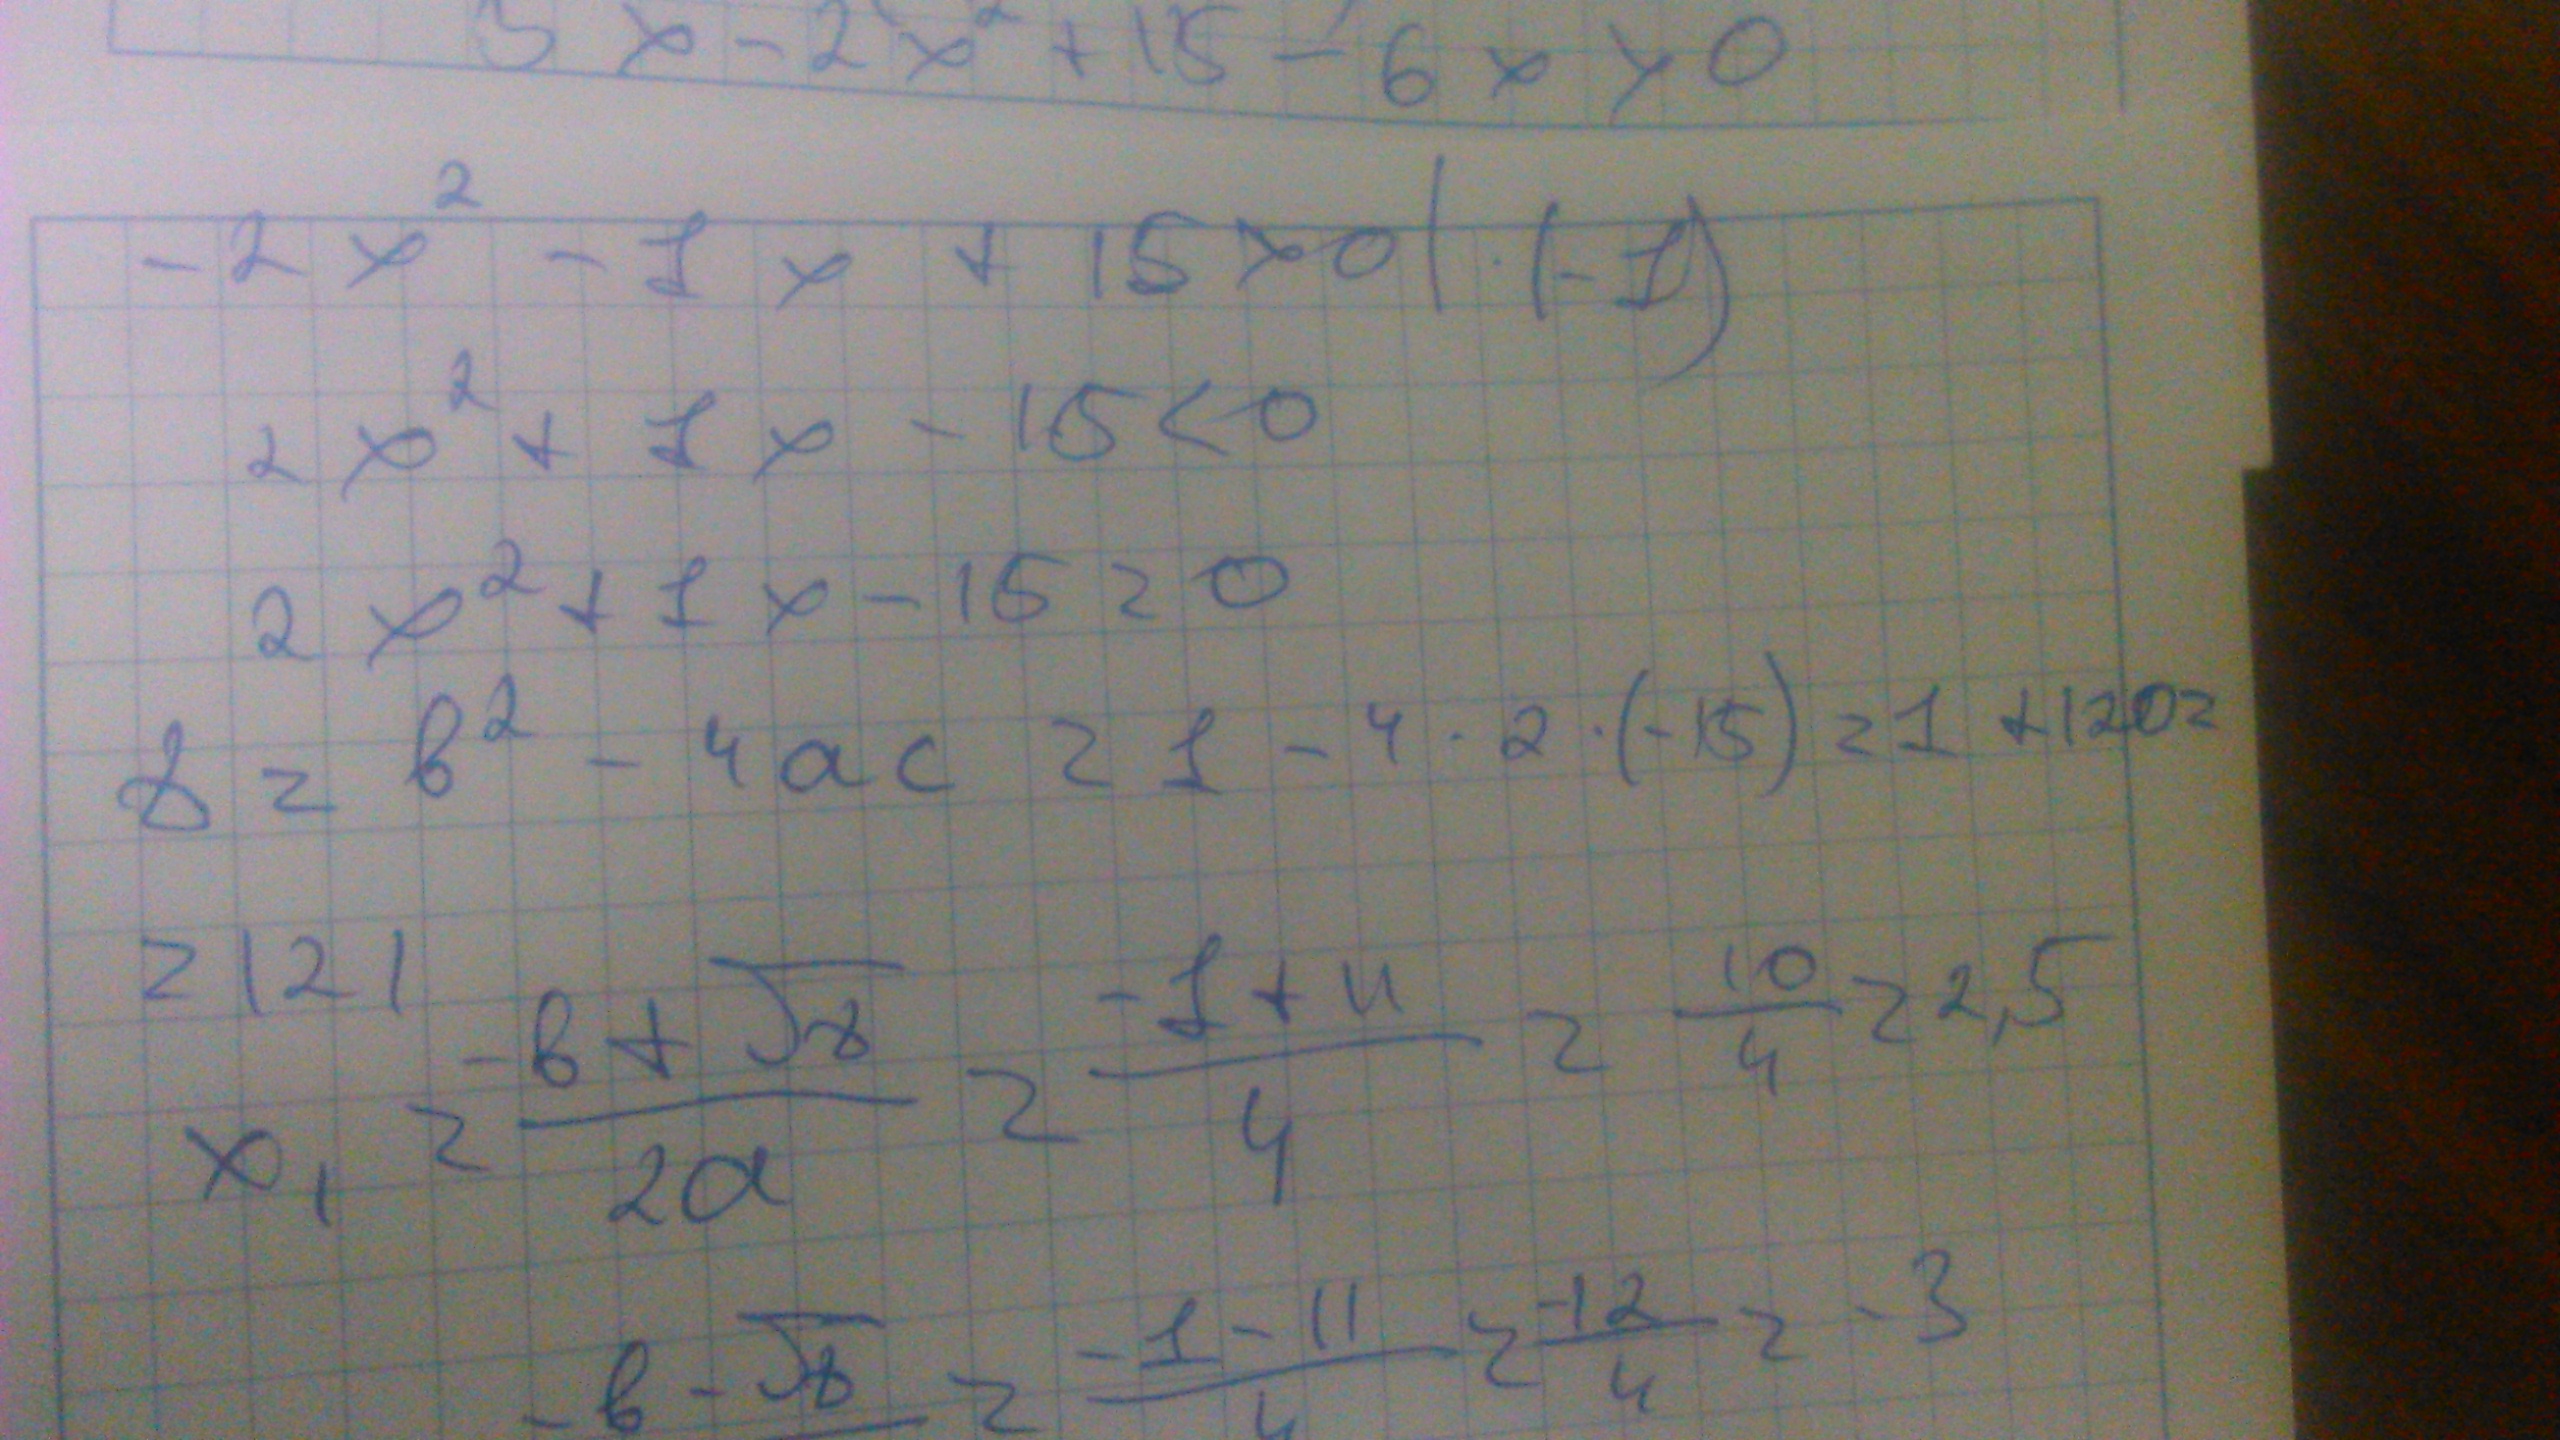 5x - 2x² + 15 - 6x > 0
-2x² - 1x + 15 > 0 | · (-1)
2x² + 1x - 15 < 0
2x² + 1x - 15 = 0
D = b² - 4ac = 1 - 4 · 2 · (-15) = 1 + 120 =
= 121
x₁ = (-b + √D)/(2a) = (-1 + 11)/4 = 10/4 = 2,5
(-b - √D) = (-1 - 11)/4 = -12/4 = -3